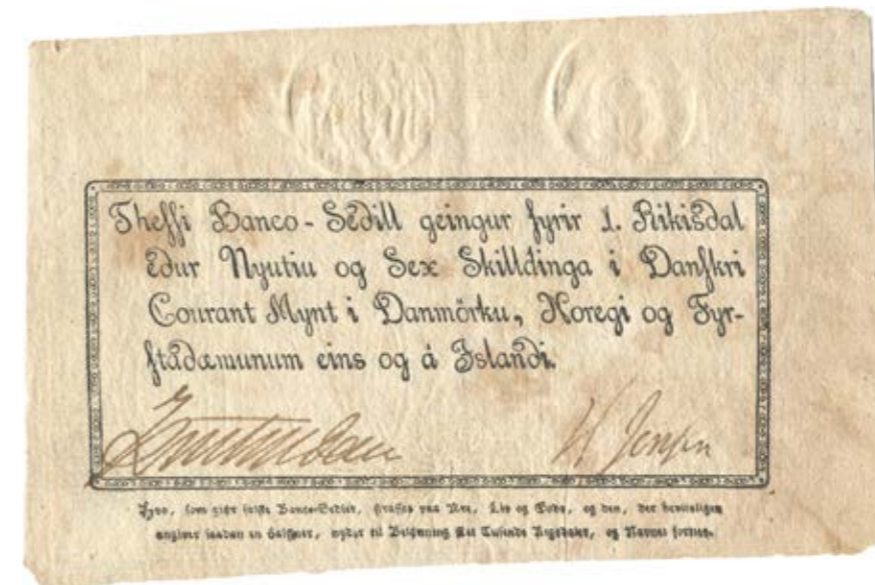 Thessi Banco-Sedill geingur fyrir 1. Rikisdal
edur Nyutiu og Sex Skilldinga i Danskri
Courant Mynt i Danmörku, Noregi og Fyr-
stadæmunum eins og á Islandi.
H Jensen
Hvo, som giør falske Banco-Sedler, straffes paa Ære, Liv og Gods, og den, der beviisligen
angiver saadan en Falskner, nyder til Belønning Eet Tusinde Rigsdaler, og Navnet forties.